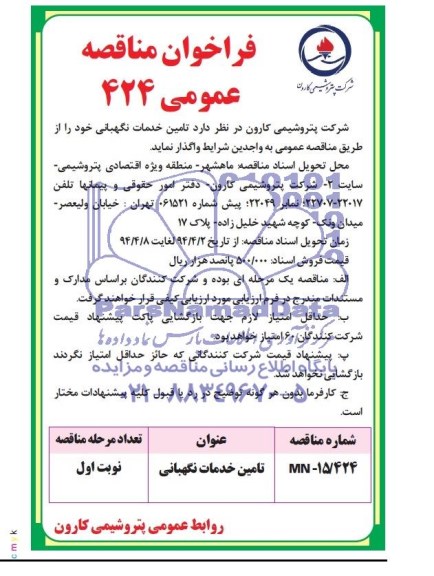 فراخوان مناقصه
عمومی ۴۲۴
شرکت پتروشیمی کارون
شرکت پتروشیمی کارون در نظر دارد تامین خدمات نگهبانی خود را از
طریق مناقصه عمومی به واجدین شرایط واگذار نماید.
محل تحویل اسناد مناقصه: ماهشهر- منطقه ویژه اقتصادی پتروشیمی-
سایت ۲- شرکت پتروشیمی کارون- دفتر امور حقوقی و پیمانها تلفن
۲۲۰۱۷-۲۲۷۰۷؛ نمابر ۲۲۰۴۹؛ پیش شماره ۰۶۱۵۲۱ تهران : خیابان ولیعصر-
میدان ونک- کوچه شهید خلیل زاده- پلاک ۱۷
زمان تحویل اسناد مناقصه: از تاریخ ۹۴/۴/۲ لغایت ۹۴/۴/۸
قیمت فروش اسناد: ۵۰۰/۰۰۰ پانصد هزار ریال
الف: مناقصه یک مرحله ای بوده و شرکت کنندگان براساس مدارک و
مستندات مندرج در فرم ارزیابی مورد ارزیابی کیفی قرار خواهند گرفت.
ب: حداقل امتیاز لازم جهت بازگشایی پاکت پیشنهاد قیمت
شرکت کنندگان ۶۰ امتیاز خواهد بود.
پ: پیشنهاد قیمت شرکت کنندگانی که حائز حداقل امتیاز نگردند
بازگشایی نخواهد شد.
ج: کارفرما بدون هر گونه توضیح در رد یا قبول کلیه پیشنهادات مختار
است.
شماره مناقصه عنوان تعداد مرحله مناقصه
MN-۱۵/۴۲۴ تامین خدمات نگهبانی نوبت اول
روابط عمومی پتروشیمی کارون
ParsNamadData
پایگاه اطلاع رسانی مناقصه و مزایده
۰۲۱-۸۸۳۴۹۶۷۰-۵
c m y k